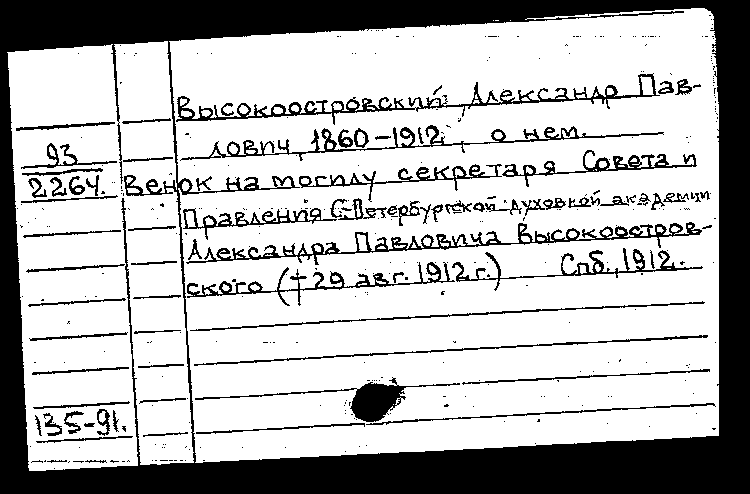 Высокоостровский, Александр Пав-
лович, 1860-1912, о нем.
93
2264. Венок на могилу секретаря Совета и
Правления С-Петербургской духовной академии
Александра Павловича Высокоостров-
ского (†29 авг. 1912 г.) Спб., 1912.
135-91.